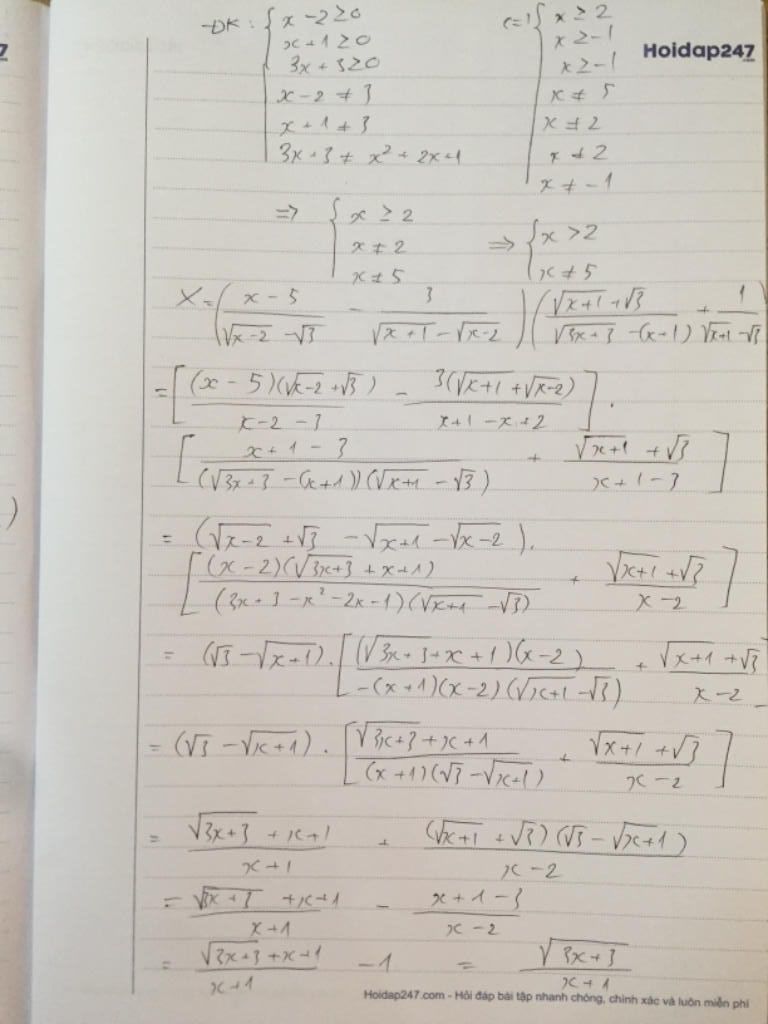 -ĐK: { x - 2 ≥ 0 (=) { x ≥ 2
x + 1 ≥ 0 x ≥ -1
3x + 3 ≥ 0 x ≥ -1
Hoidap247
x - 2 ≠ 3 x ≠ 5
x + 1 ≠ 3 x ≠ 2
3x + 3 ≠ x² + 2x + 1 x ≠ 2
x ≠ -1
=> { x ≥ 2
x ≠ 2 => { x > 2
x ≠ 5 x ≠ 5
X = ( (x - 5)/(√(x-2) - √3) - 3/(√(x+1) - √(x-2)) ) ( (√(x+1) + √3)/(√(3x+3) - (x+1)) + 1/(√(x+1) - √3) )
= [ (x - 5)(√(x-2) + √3)/(x - 2 - 3) - 3(√(x+1) + √(x-2))/(x + 1 - x + 2) ] .
[ (x + 1 - 3)/((√(3x+3) - (x+1))(√(x+1) - √3)) + (√(x+1) + √3)/(x + 1 - 3) ]
= (√(x-2) + √3 - √(x+1) - √(x-2)).
[ (x - 2)(√(3x+3) + x + 1)/((3x + 3 - x² - 2x - 1)(√(x+1) - √3)) + (√(x+1) + √3)/(x - 2) ]
= (√3 - √(x+1)) . [ (√(3x+3) + x + 1)(x - 2)/(-(x+1)(x-2)(√(x+1) - √3)) + (√(x+1) + √3)/(x - 2)
= (√3 - √(x+1)) . [ (√(3x+3) + x + 1)/((x+1)(√3 - √(x+1))) + (√(x+1) + √3)/(x - 2) ]
= (√(3x+3) + x + 1)/(x + 1) + (√(x+1) + √3)(√3 - √(x+1))/(x - 2)
= (√(3x+3) + x + 1)/(x + 1) - (x + 1 - 3)/(x - 2)
= (√(3x+3) + x + 1)/(x + 1) - 1 = √(3x+3)/(x + 1)
Hoidap247.com - Hỏi đáp bài tập nhanh chóng, chính xác và luôn miễn phí